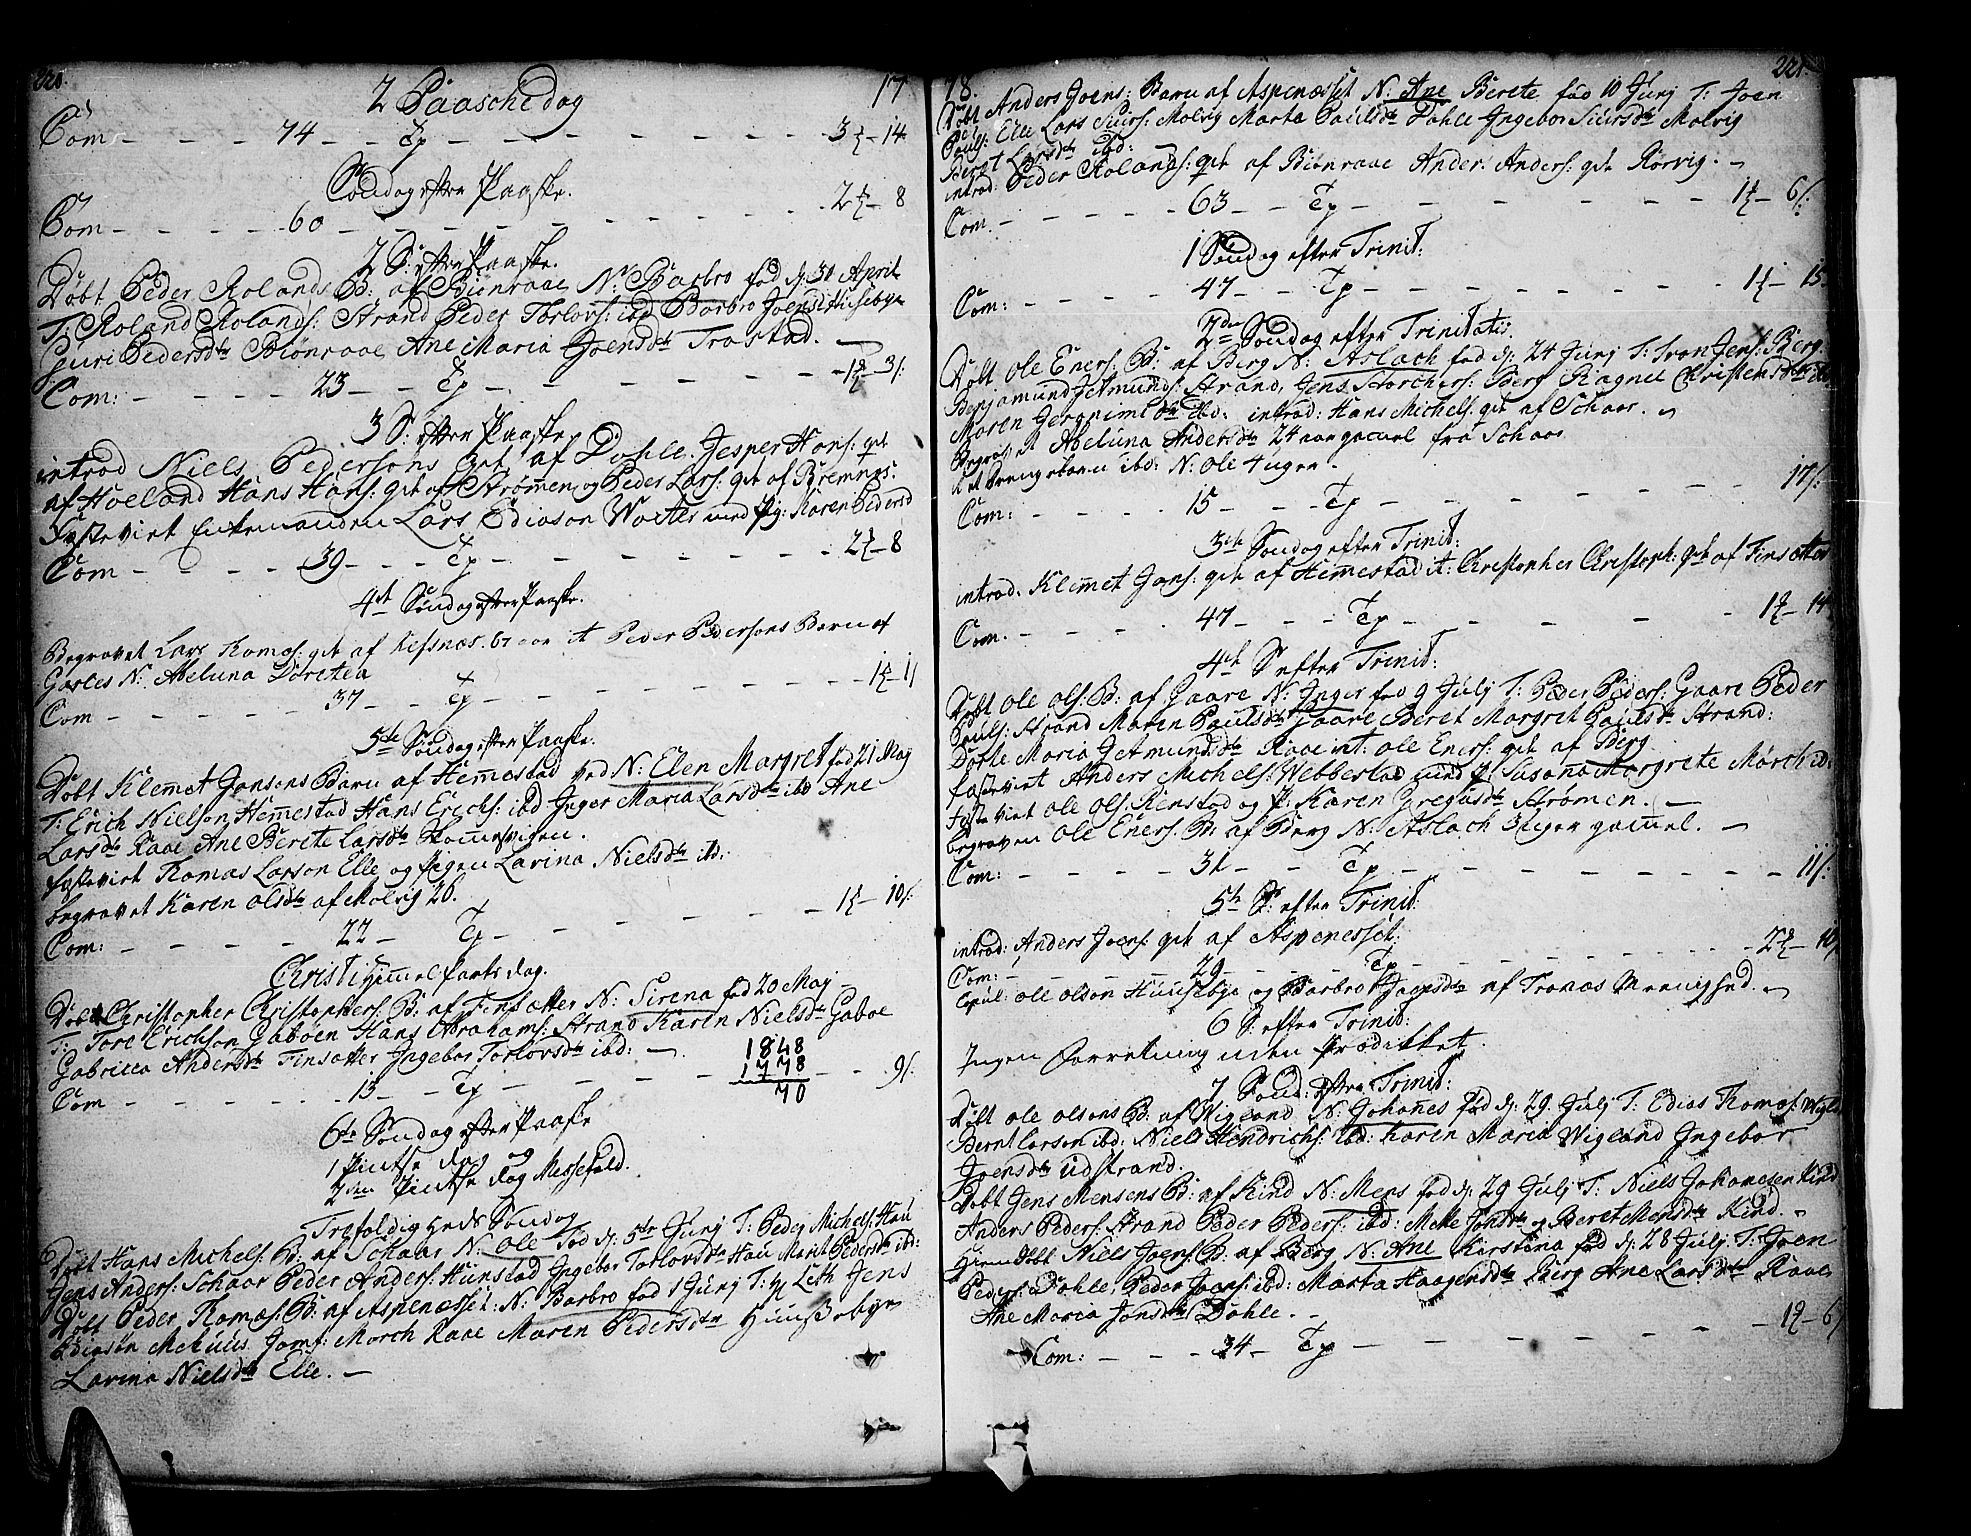 220.
2 Paasche dag 17
Com - - - 74 - - Tp - - - - - - 3 - 14
Søndag efter Paaske.
Com - - - - 60 - - - - - - - 2 - 8
2 S: efter Paaske.
Døbt Peder Rolands B: af Biönraae N: Barbro fød d: 30 April
T: Roland Rolands: Strand Peder Torlovs: ibd Barbro Joensd: Husebye
Guri Pedersdtr Biönraae Ane Maria Joensdtr Trastad.
Com: - - - 23 - - Tp - - - - - - 1 - 3/:
3 S: efter Paaske
introd Niels Pedersøns qvt af Dohle. Jesper Hans: qvt
af Hoeland Hans Hans: qvt af Strømen og Peder Lars: qvt af Bremnes:
Fæstevirt Enkemanden Lars Ediason med Pig: Karen Pedersd
Com - - - - 39 - - - Tp - - - - - - 2 - 8
4de Søndag efter Paaske.
Begravet Lars Tomas: qvt af 67 aar it Peder Pedersøns Barn af
N: Abeluna Doretea
Com - - - - - 37 - - Tp - - - - - - 1 - 11
5te Søndag efter Paaske.
Døbt Klemet Jonsens Barn af Hemestad ved N: Elen Margret fød 21 Maj
T: Erich Nielson Hemestad Hans Erichs: ibd Inger Maria Larsdtr ibd Ane
Larsdtr Raae Ane Berete Larsdtr
fæstevirt Tomas Larson Elle og Pigen Lavina Nielsdtr ibd:
begravet Karen Olsdtr af Molvig 26.
Com: - - - - 22 - Tp - - - - - 1 - 10/:
Christi Himmelfarts dag.
Døbt Christopher Christophers: B: af Finsætter N: Sirena fød 20 Maj
T: Tore Erichson Gabøen Hans Abrahams: Strand Karen Nielsdtr Gaboe
Gabriela Andersdtr Finsætter Ingebor Torlovsdtr ibd: - 1848
1778
Com - - - - - - 15 - - Tp - - - - - 70 - - 9/:
6te Søndag efter Paaske
1 Pintse dag og
2den Pintse dag Messefald.
Trefoldigheds Søndag
Døbt Hans Michels: B: af Schaar N: Ole fød d: 5te Junj T: Peder Michels: Hau
Jens Anders: Schaar Peder Anders: Hunstad Ingebor Torlovsdtr Hau Marit Pedersdtr ibd:
Døbt Peder Tomas: B: af Aspenæsset: N: Barbro fød 1 Junj T: Hr Leth Jens
Jomf: Morch Raae Maren Pedersdtr
Lavina Nielsdtr Elle. -
78. 221
Døbt Anders Joens: Barn af Aspenæsset N: Ane Berete fød 10 Junj T: Joen
Pouls: Elle Lars Siurs: Molvig Marta Paulsdtr Dohle Ingebor Siursdtr Molvig
Beret Larsdtr ibd: -
introd: Peder Rolands: qvt af Biönraae Ander: Anders: qvt Rørvig. -
Com - - - - 63 - - Tp - - - - - - 1 - 6/:
1 Søndag efter Trinit:
Com: - - - - 47 - - Tp - - - - - - 1 - 15:
2den Søndag efter Trinitatis:
Døbt Ole Eners: B: af Berg N: Aslach fød d: 24 Junj T: Jens: Berg
Benjamund Jetmunds: Strand, Jens Berg Ragnel Christensdtr ibd
Maren ibd: introd: Hans Michels: qvt af Schaar.
Begravet Abeluna Andersdtr 24 aar gamel fra Schaar
it et Drengebarn ibd: N: Ole 4 uger.
Com: - - - - 15 - - - Tp - - - - - 17/:
3de Søndag efter Trinit:
introd: Klemet Jons: qvt af Hemestad it: Christopher Christoph: qvt af Finsætter
Com. - - - - 47 - - - Tp - - - - - 1 - 14
4de S: efter Trinit:
Døbt Ole Ols: B: af Gaare N: Inger fød 9 Julj T: Peder Peders: Gaare Peder
Pouls: Strand Maren Paulsdtr Gaare Beret Margret Paulsdtr Strand:
Dorte Maria Jetmundsdtr Raae int: Ole Eners: qvt af Berg
fæstevirt Anders Michels: Webbestad med P: Susana Margrete Mørch ibd:
Fæstevirt Ole Ols: Renstad og P: Karen Gregusdtr Strømen. -
begraven Ole Eners: B: af Berg N: Aslach 3 uger gamel. -
Com: - - - - 31 - - Tp - - - - - - 11/:
5te S: efter Trinit:
introd: Anders Joens: qvt af Aspenesset:
Com: - - - - 29 - - - Tp - - - - - 2 - 10
Copul: Ole Olson Huusebye og Barbro Joensdtr af Tronæs Menighed.
6 S: efter Trinit:
Ingen Forretning uden Prædikket.
7 Sønd: efter Trinit:
Døbt Ole Olsons B: af Wigland N: Johanes fød d: 29 Julj T: Edias Tomas: Wigla
Bernt Larsen ibd: Niels Hendrichs: ibd: Karen Maria Wigland Ingebor
Joensdtr udstrand.
Døbt Jens Mensens B: af Kind N: Mens fød d: 29 Julj T: Niels Johanesen Kind
Anders Peders: Strand Peder Peders: ibd: Mette Jonsdtr og Beret Mensdtr Kind.
Hiemdøbt Niels Joens: B: af Berg N: Ane Kirstina fød d: 28 Julj T: Joen
Peders: Dohle, Peder Joens: ibd: Marta Haagensdtr Berg Ane Larsdtr Raae
Ane Maria Jonsdtr Dohle. - 1 - 6/
Com: - - - 34 - Tp - - - - -